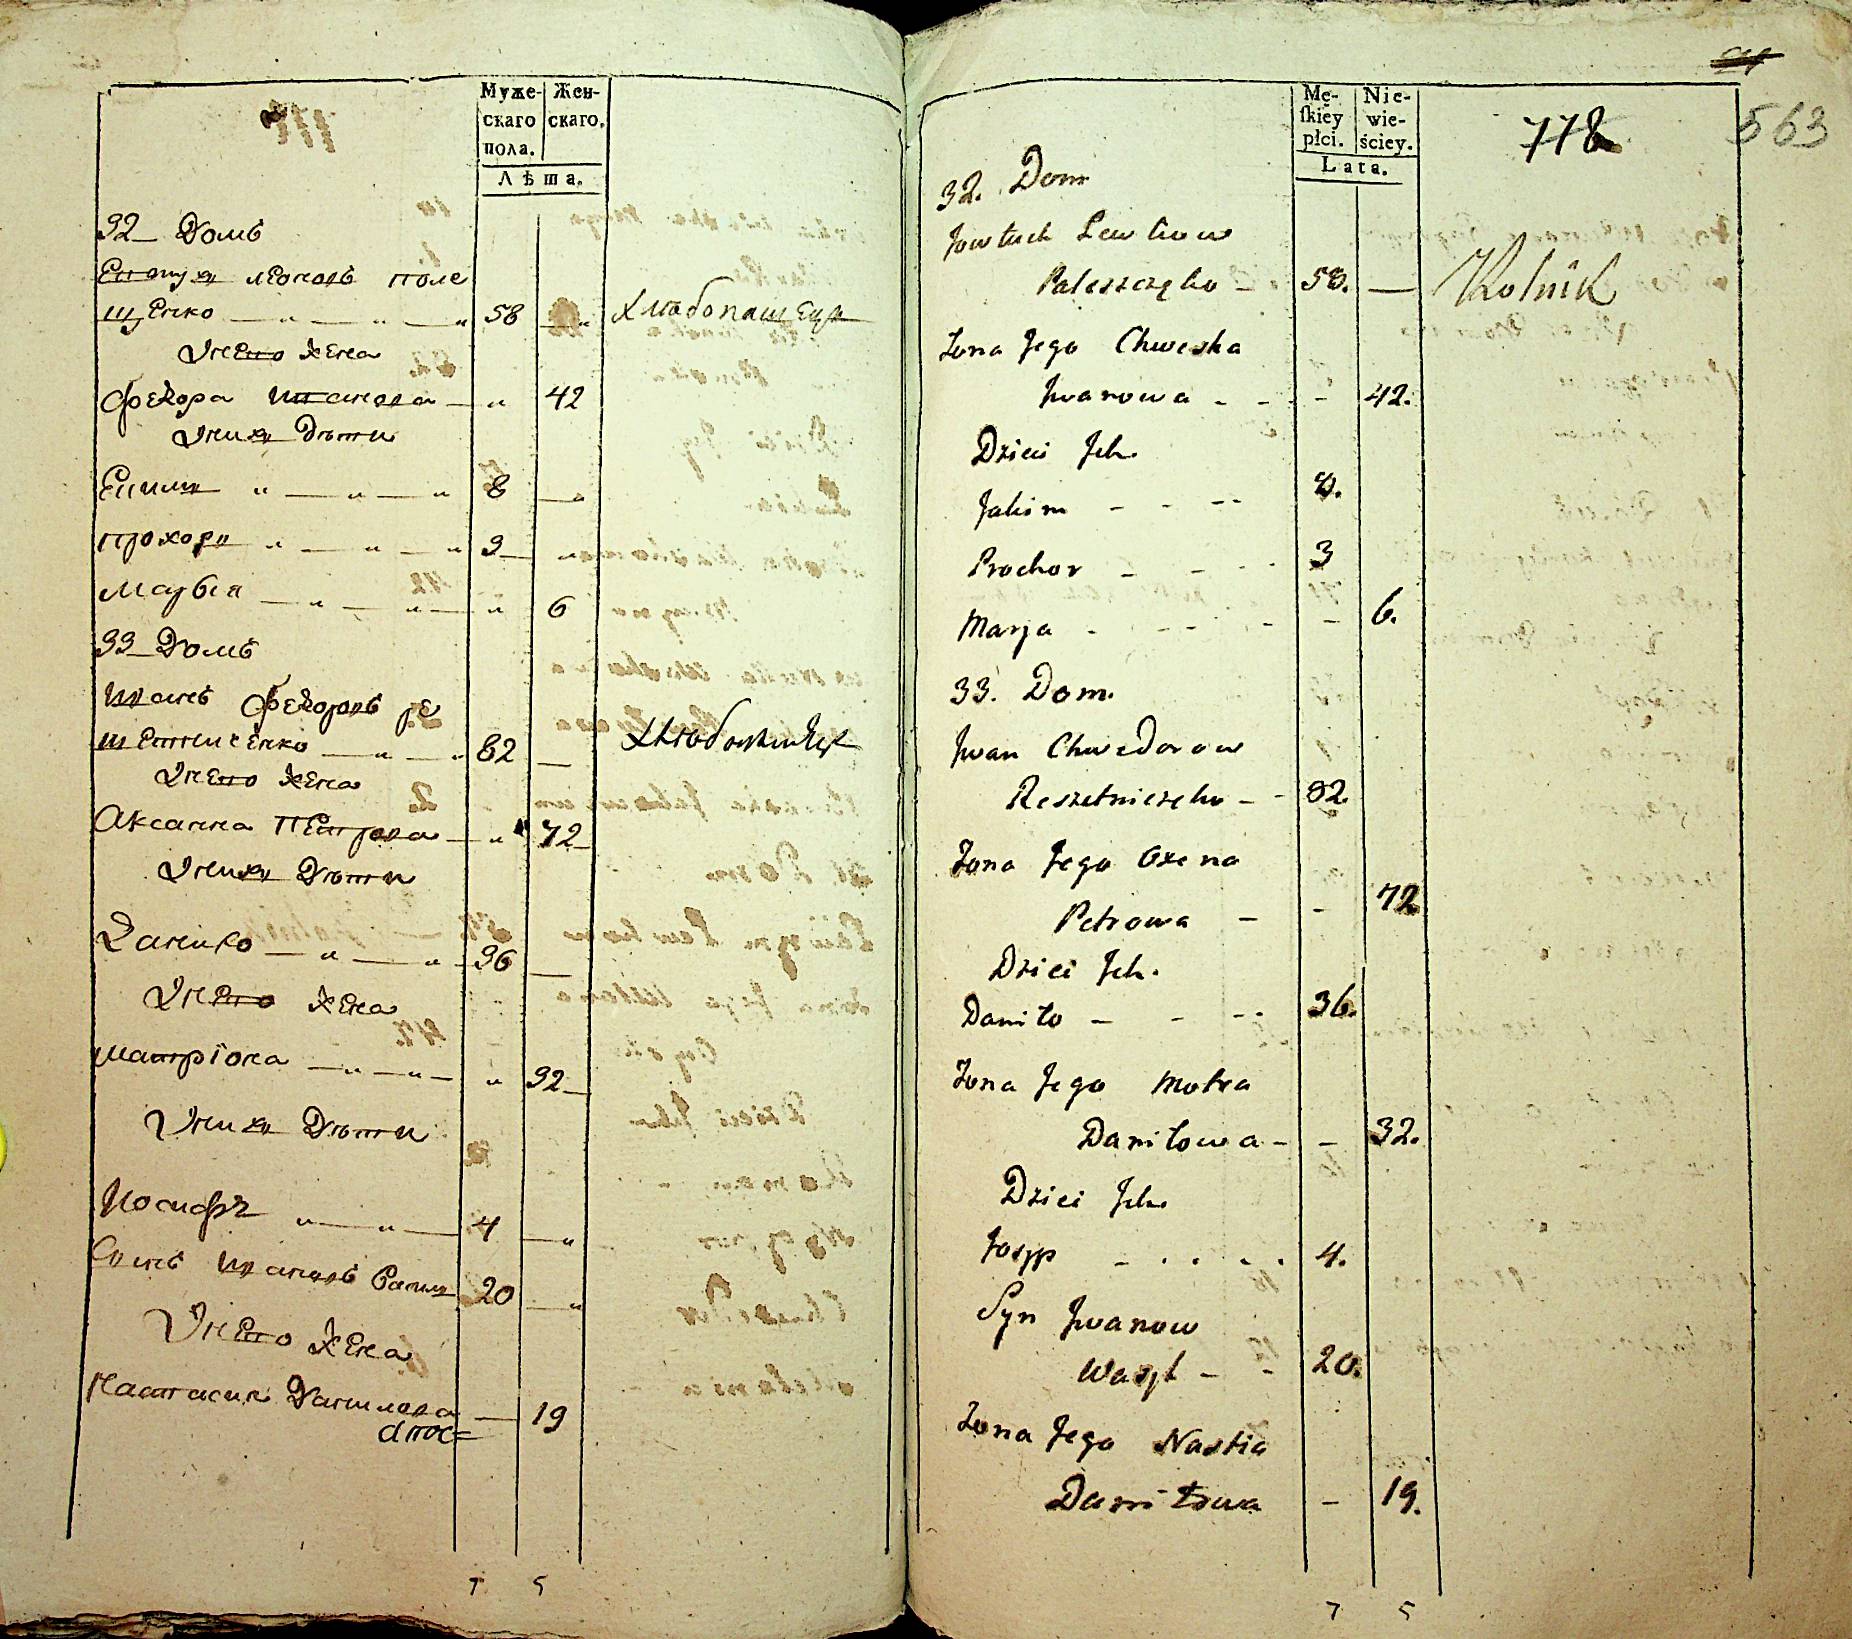 Муже-
скаго
пола.
Жен-
скаго.
Лѣта.
32 Домъ
Евтухъ Леоновъ Поле
щенко 58 Хлѣбопашецъ
У него жена
Федора Иванова 42
У нихъ дѣти
Екимъ 8
Прохоръ 3
Марья 6
33 Домъ
Иванъ Федоровъ Ре
шетниченко 82 Хлѣбопашецъ
У него жена
Аксанна Петрова 72
У нихъ дѣти
Данило 36
У него жена
Матріона 32
У нихъ дѣти
Иосифъ 4
Сынъ Ивановъ 20
У него жена
Настасия Данилова 19
7 5
Mę-
ſkiey
płci.
Nie-
wie-
ściey.
Lata.
778
563
32. Dom
Jowtuch Lewkow
Paleszczęko 58. Rolnik
Żona Jego Chweska
Jwanowa 42.
Dzieci Jch.
Jakim 8.
Prochor 3
Marja 6.
33. Dom.
Jwan Chwedorow
Reszetniczęko 82.
Żona Jego Oxena
Petrowa 72
Dzieci Jch.
Daniło 36.
Żona Jego Motra
Daniłowa 32.
Dzieci Jch.
Josyp 4.
Syn Jwanow
Wasyl 20.
Żona Jego Nastia
Daniłowa 19.
7 5